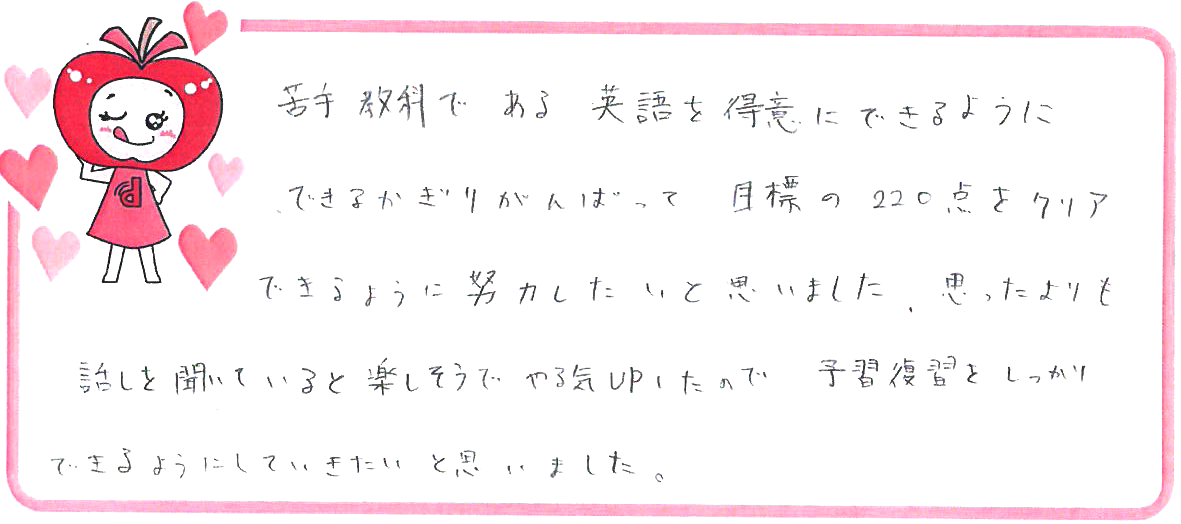 苦手教科で ある 英語を得意にできるように
できるかぎりがんばって 目標の220点をクリア
できるように努力したいと思いました.思ったよりも
話しを聞いていると楽しそうでやる気UPしたので 予習復習をしっかり
できるようにしていきたいと思いました。